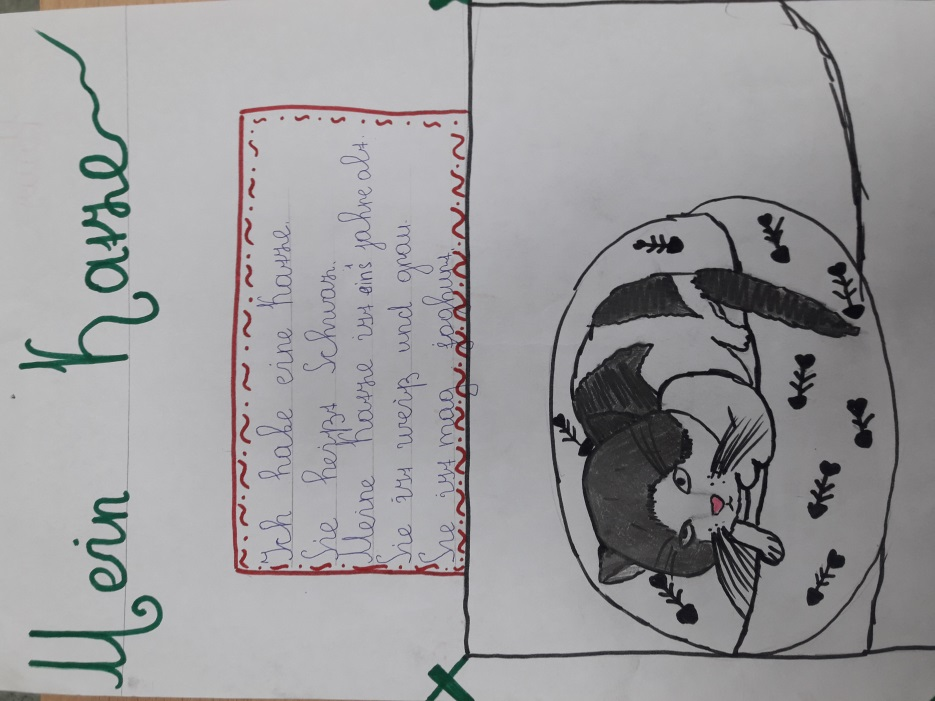 Mein Katze
Ich habe eine Katze.
Sie heißt Schwarz.
Meine Katze ist eins jahre alt.
Sie ist weiß und grau.
Sie ist mag joghurt.